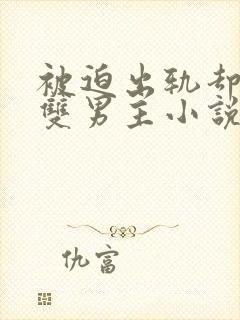 被迫出轨却
雙男主小説
仇富